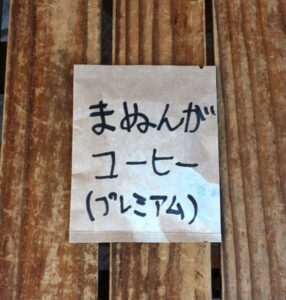 まぬんが
コーヒー
(プレミアム)